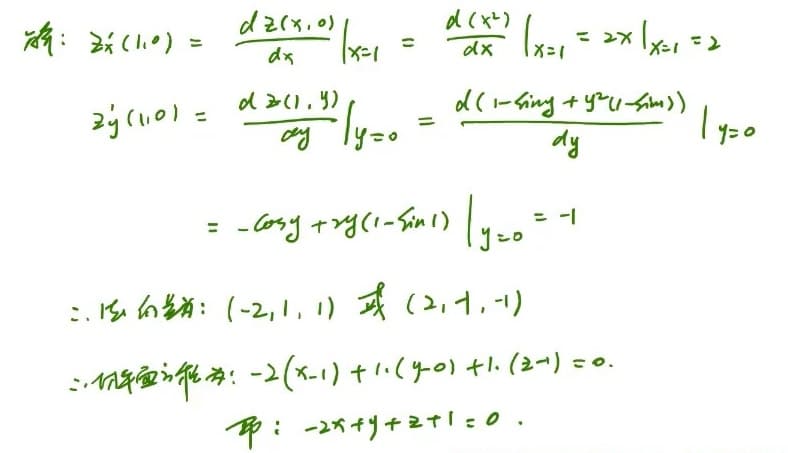 解: z'x(1,0) = dz(x,0)/dx |x=1 = d(x²)/dx |x=1 = 2x|x=1 = 2
z'y(1,0) = dz(1,y)/dy |y=0 = d(1-siny+y²(1-sin1))/dy |y=0
= -cosy+2y(1-sin1) |y=0 = -1
∴法向量为: (-2,1,1) 或 (2,-1,-1)
∴切平面方程为: -2(x-1)+1·(y-0)+1·(z-1)=0.
即: -2x+y+z+1=0.